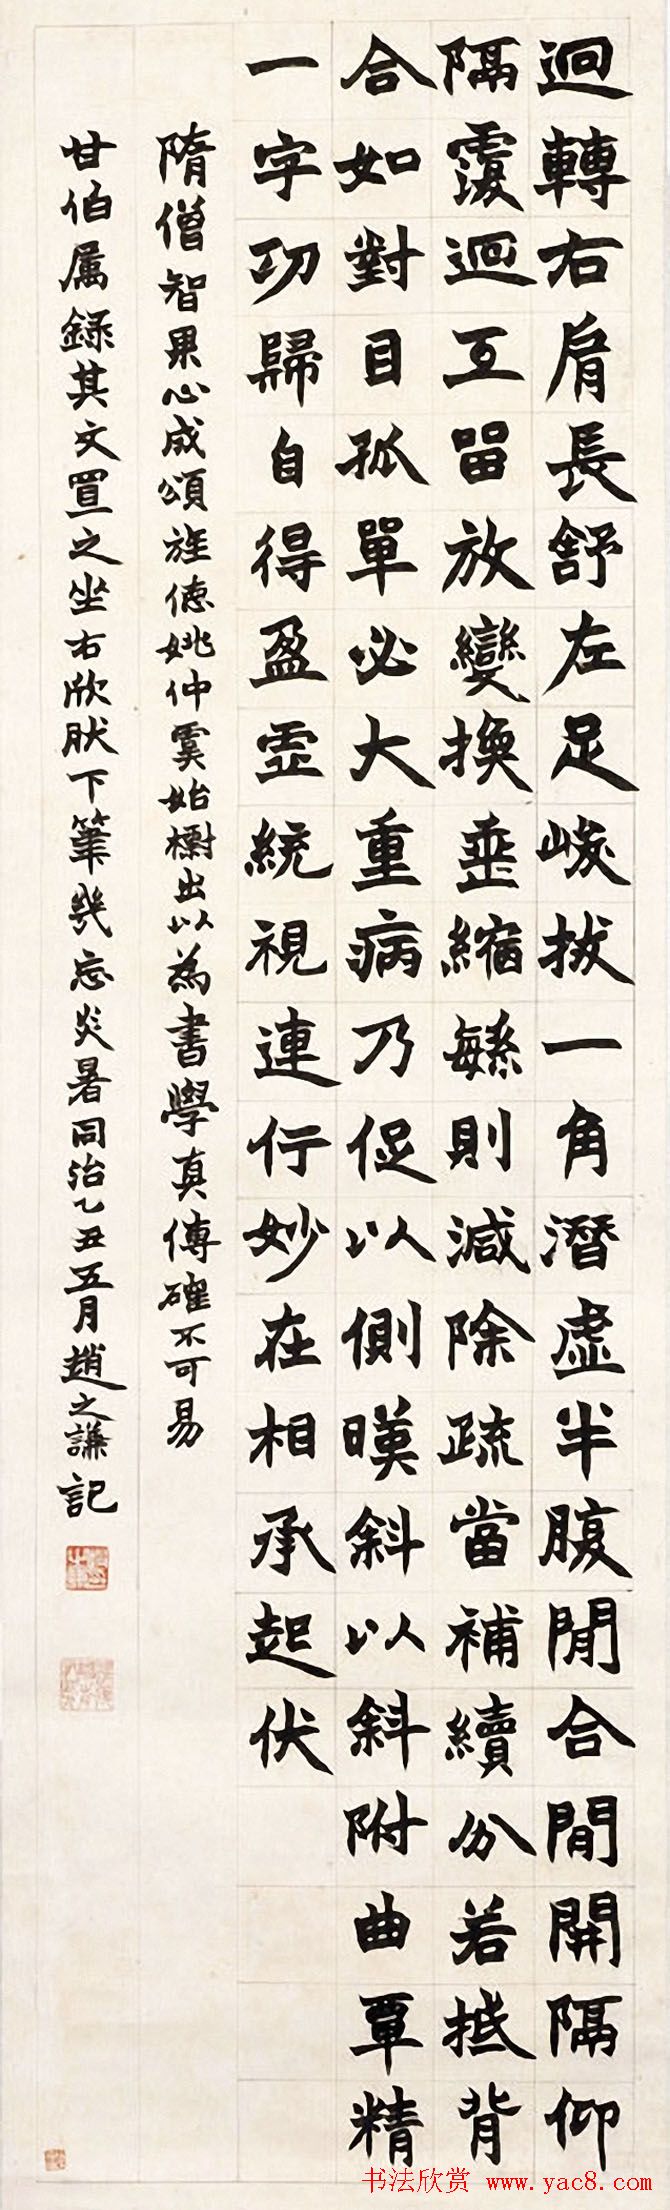 迴轉右肩長舒左足峻拔一角潛虛半腹閒合閒開隔仰
隔覆迴互留放變換垂縮繁則減除疏當補續分若抵背
合如對目孤單必大重病乃促以側暎斜以斜附曲覃精
一字功歸自得盈虛統視連行妙在相承起伏
隋僧智果心成頌旌德姚仲虞始出以為書學真傳確不可易
甘伯属錄其文置之坐右欣肰下筆幾忘炎暑同治乙丑五月趙之謙記
书法欣赏 www.yac8.com